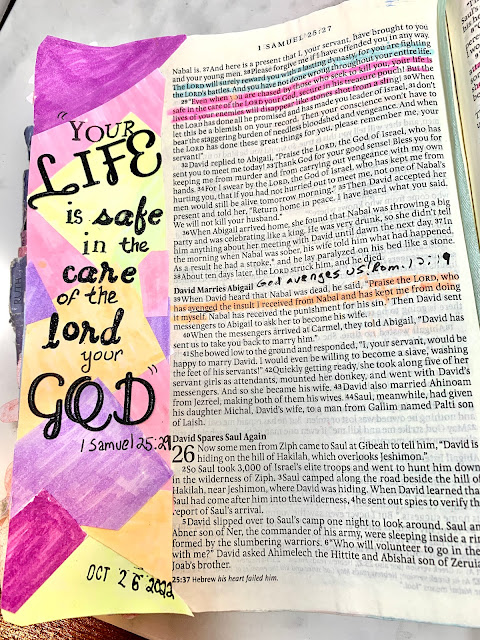 "YOUR
LIFE
is safe
in the
care
of the
lord
your
GOD"
1 Samuel 25:29
OCT 26 2022
1 SAMUEL 25:27
Nabal is. 27And here is a present that I, your servant, have brought to you
and your young men. 28Please forgive me if I have offended you in any way.
The LORD will surely reward you with a lasting dynasty, for you are fighting
the LORD's battles. And you have not done wrong throughout your entire life.
29"Even when you are chased by those who seek to kill you, your life is
safe in the care of the LORD your God, secure in his treasure pouch! But the
lives of your enemies will disappear like stones shot from a sling! 30When
the LORD has done all he promised and has made you leader of Israel, 31don't
let this be a blemish on your record. Then your conscience won't have to
bear the staggering burden of needless bloodshed and vengeance. And when
the LORD has done these great things for you, please remember me, your
servant!"
32David replied to Abigail, "Praise the LORD, the God of Israel, who has
sent you to meet me today! 33Thank God for your good sense! Bless you for
keeping me from murder and from carrying out vengeance with my own
hands. 34For I swear by the LORD, the God of Israel, who has kept me from
hurting you, that if you had not hurried out to meet me, not one of Nabal's
men would still be alive tomorrow morning." 35Then David accepted her
present and told her, "Return home in peace. I have heard what you said.
We will not kill your husband."
36When Abigail arrived home, she found that Nabal was throwing a big
party and was celebrating like a king. He was very drunk, so she didn't tell
him anything about her meeting with David until dawn the next day. 37In
the morning when Nabal was sober, his wife told him what had happened.
As a result he had a stroke,* and he lay paralyzed on his bed like a stone.
38About ten days later, the LORD struck him, and he died.
David Marries Abigail God avenges us! Rom. 12:19
39When David heard that Nabal was dead, he said, "Praise the LORD, who
has avenged the insult I received from Nabal and has kept me from doing
it myself. Nabal has received the punishment for his sin." Then David sent
messengers to Abigail to ask her to become his wife.
40When the messengers arrived at Carmel, they told Abigail, "David has
sent us to take you back to marry him."
41She bowed low to the ground and responded, "I, your servant, would be
happy to marry David. I would even be willing to become a slave, washing
the feet of his servants!" 42Quickly getting ready, she took along five of her
servant girls as attendants, mounted her donkey, and went with David's
messengers. And so she became his wife. 43David also married Ahinoam
from Jezreel, making both of them his wives. 44Saul, meanwhile, had given
his daughter Michal, David's wife, to a man from Gallim named Palti son
of Laish.
David Spares Saul Again
26 Now some men from Ziph came to Saul at Gibeah to tell him, "David is
hiding on the hill of Hakilah, which overlooks Jeshimon."
2So Saul took 3,000 of Israel's elite troops and went to hunt him down
in the wilderness of Ziph. 3Saul camped along the road beside the hill of
Hakilah, near Jeshimon, where David was hiding. When David learned tha
Saul had come after him into the wilderness, 4he sent out spies to verify th
report of Saul's arrival.
5David slipped over to Saul's camp one night to look around. Saul an
Abner son of Ner, the commander of his army, were sleeping inside a rin
formed by the slumbering warriors. 6"Who will volunteer to go in the
with me?" David asked Ahimelech the Hittite and Abishai son of Zeruia
Joab's brother.
25:37 Hebrew his heart failed him.